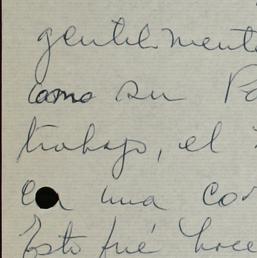 gentilmente
como su
trabajo, el
una
Esto fué hace